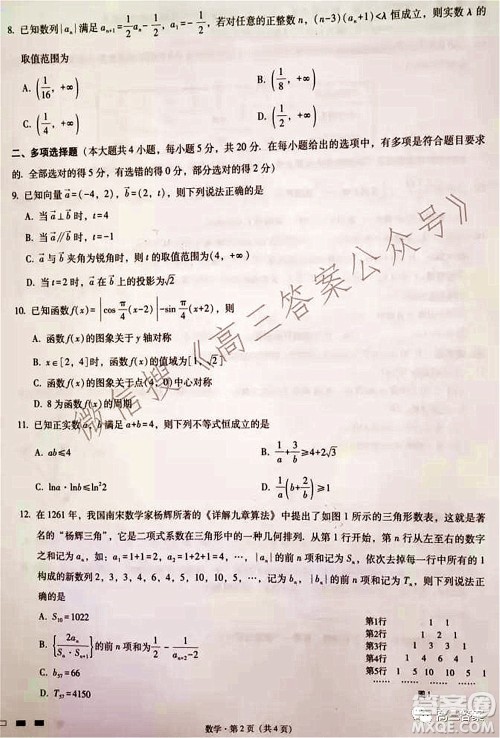 8. 已知数列{aₙ}满足 aₙ₊₁=1/2 aₙ-1/2, a₁=-1/2, 若对任意的正整数 n, (n-3)(aₙ+1)<λ 恒成立, 则实数 λ 的
取值范围为
A. (1/16, +∞) B. (1/8, +∞)
C. (1/4, +∞) D. (1/2, +∞)
二、多项选择题(本大题共4小题,每小题5分,共20分.在每小题给出的选项中,有多项是符合题目要求
的.全部选对的得5分,有选错的得0分,部分选对的得2分)
9. 已知向量 a⃗=(-4, 2), b⃗=(2, t), 则下列说法正确的是
A. 当 a⃗⊥b⃗ 时, t=4
B. 当 a⃗∥b⃗ 时,
C. a⃗ 与 b⃗ 夹角为锐角时, 则 t 的取值范围为(4, +∞)
D. 当 t=2 时, a⃗ 在 b⃗ 上的投影为√2
10. 已知函数 f(x)=|cos π/4 (x-2)|-sin π/4 (x+2), 则
A. 函数 f(x) 的图象关于 y 轴对称
B. x∈[2, 4] 时, 函数 f(x) 的值域为[1, √2]
C. 函数 f(x) 的图象关于点(4, 0)中心对称
D. 8 为函数 f(x) 的周期
11. 已知正实数 a, b 满足 a+b=4, 则下列不等式恒成立的是
A. ab≤4 B. 1/a+3/b≥4+2√3
C. lna·lnb≤ln²2
12. 在 1261 年, 我国南宋数学家杨辉所著的《详解九章算法》中提出了如图 1 所示的三角形数表, 这就是著
名的“杨辉三角”, 它是二项式系数在三角形中的一种几何排列. 从第 1 行开始, 第 n 行从左至右的数字
之和记为 aₙ, 如: a₁=1+1=2, a₂=1+2+1=4, …, {aₙ}的前 n 项和记为 Sₙ, 依次去掉每一行中所有的 1
构成的新数列 2, 3, 3, 4, 6, 4, 5, 10, 10, 5, …, 记为 bₙ, {bₙ}的前 n 项和记为 Tₙ, 则下列说法正
确的是
A. S₁₀=1022
B. {2aₙ/(Sₙ·Sₙ₊₁)} 的前 n 项和为 1/2-1/(aₙ₊₂-2)
C. b₅₇=66
D. T₅₇=4150
第1行 1 1
第2行 1 2 1
第3行 1 3 3 1
第4行 1 4 6 4 1
第5行 1 5 10 10 5 1
图 1
数学·第 2 页(共 4 页)
微信搜《高三答案公众号》
高三答案
答案圈
MXQE.COM